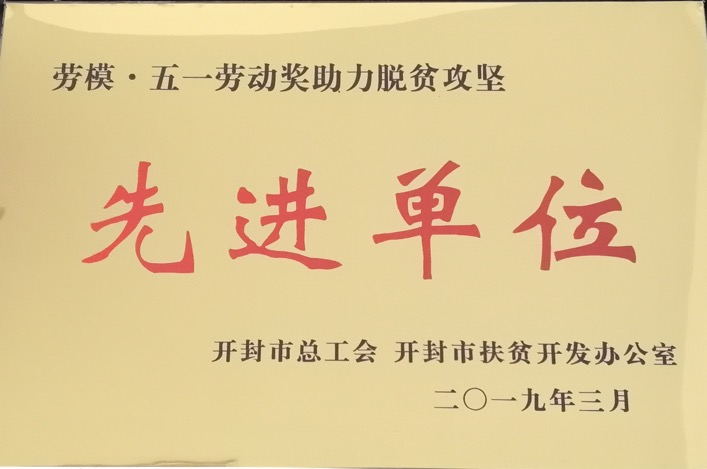 劳模·五一劳动奖助力脱贫攻坚
先进单位
开封市总工会 开封市扶贫开发办公室
二〇一九年三月